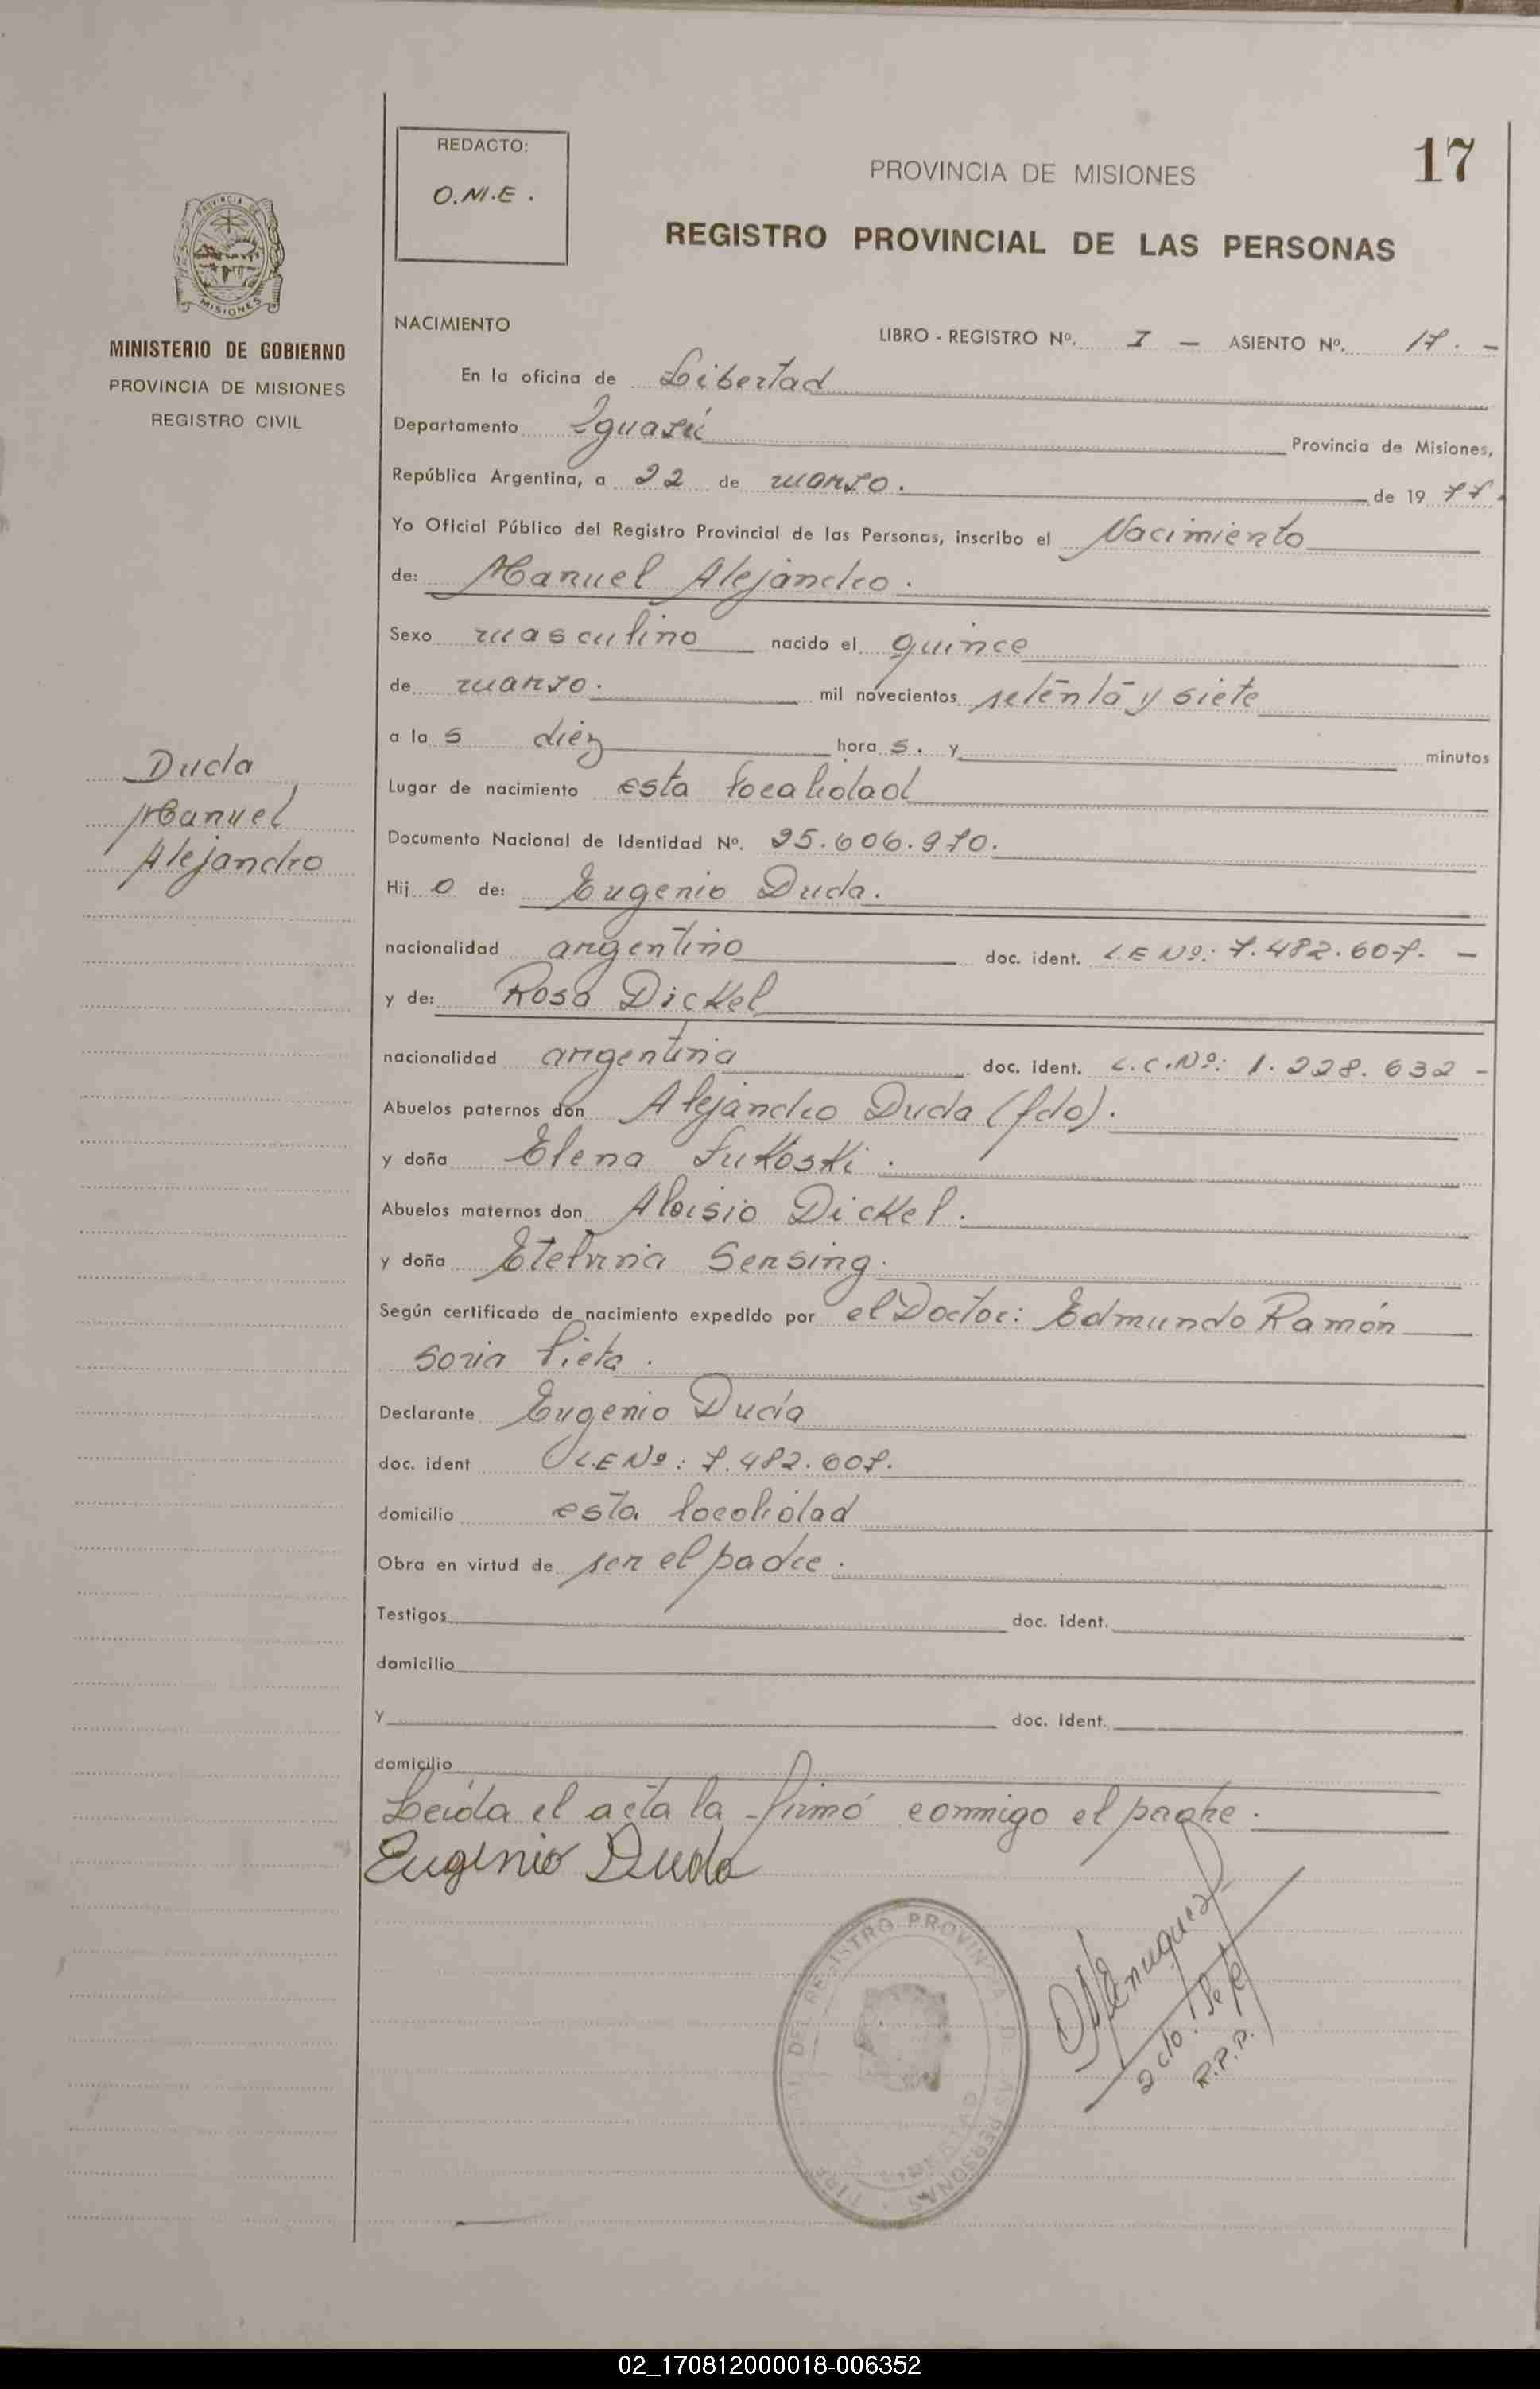 REDACTO:
O.N.E.
PROVINCIA DE MISIONES
17
REGISTRO PROVINCIAL DE LAS PERSONAS
MISIONES
MINISTERIO DE GOBIERNO
PROVINCIA DE MISIONES
REGISTRO CIVIL
NACIMIENTO
LIBRO - REGISTRO Nº. I - ASIENTO Nº. 17. -
En la oficina de Libertad
Departamento Iguazú Provincia de Misiones,
República Argentina, a 22 de marzo. de 19 77.
Yo Oficial Público del Registro Provincial de las Personas, inscribo el Nacimiento
de: Manuel Alejandro.
Sexo masculino nacido el quince
de marzo. mil novecientos setenta y siete
a la s diez hora s. y minutos
Duda
Manuel
Alejandro
Lugar de nacimiento esta localidad
Documento Nacional de Identidad Nº. 25.606.970.
Hij o de: Eugenio Duda.
nacionalidad argentino doc. ident. L.E Nº: 7.482.607. -
y de: Rosa Dickel
nacionalidad argentina doc. ident. L.C.Nº: 1.228.632 -
Abuelos paternos don Alejandro Duda (fdo).
y doña Elena Lukoski.
Abuelos maternos don Aloisio Dickel.
y doña Etelvina Sensing.
Según certificado de nacimiento expedido por el Doctor: Edmundo Ramón
Soria Vieta.
Declarante Eugenio Duda
doc. ident L.E Nº: 7.482.607.
domicilio esta localidad
Obra en virtud de ser el padre.
Testigos doc. ident.
domicilio
y doc. ident.
domicilio
Leída el acta la firmó conmigo el padre.
Eugenio Duda
DEL REGISTRO PROVINCIAL DE LAS PERSONAS
R.P.P.
02_170812000018-006352